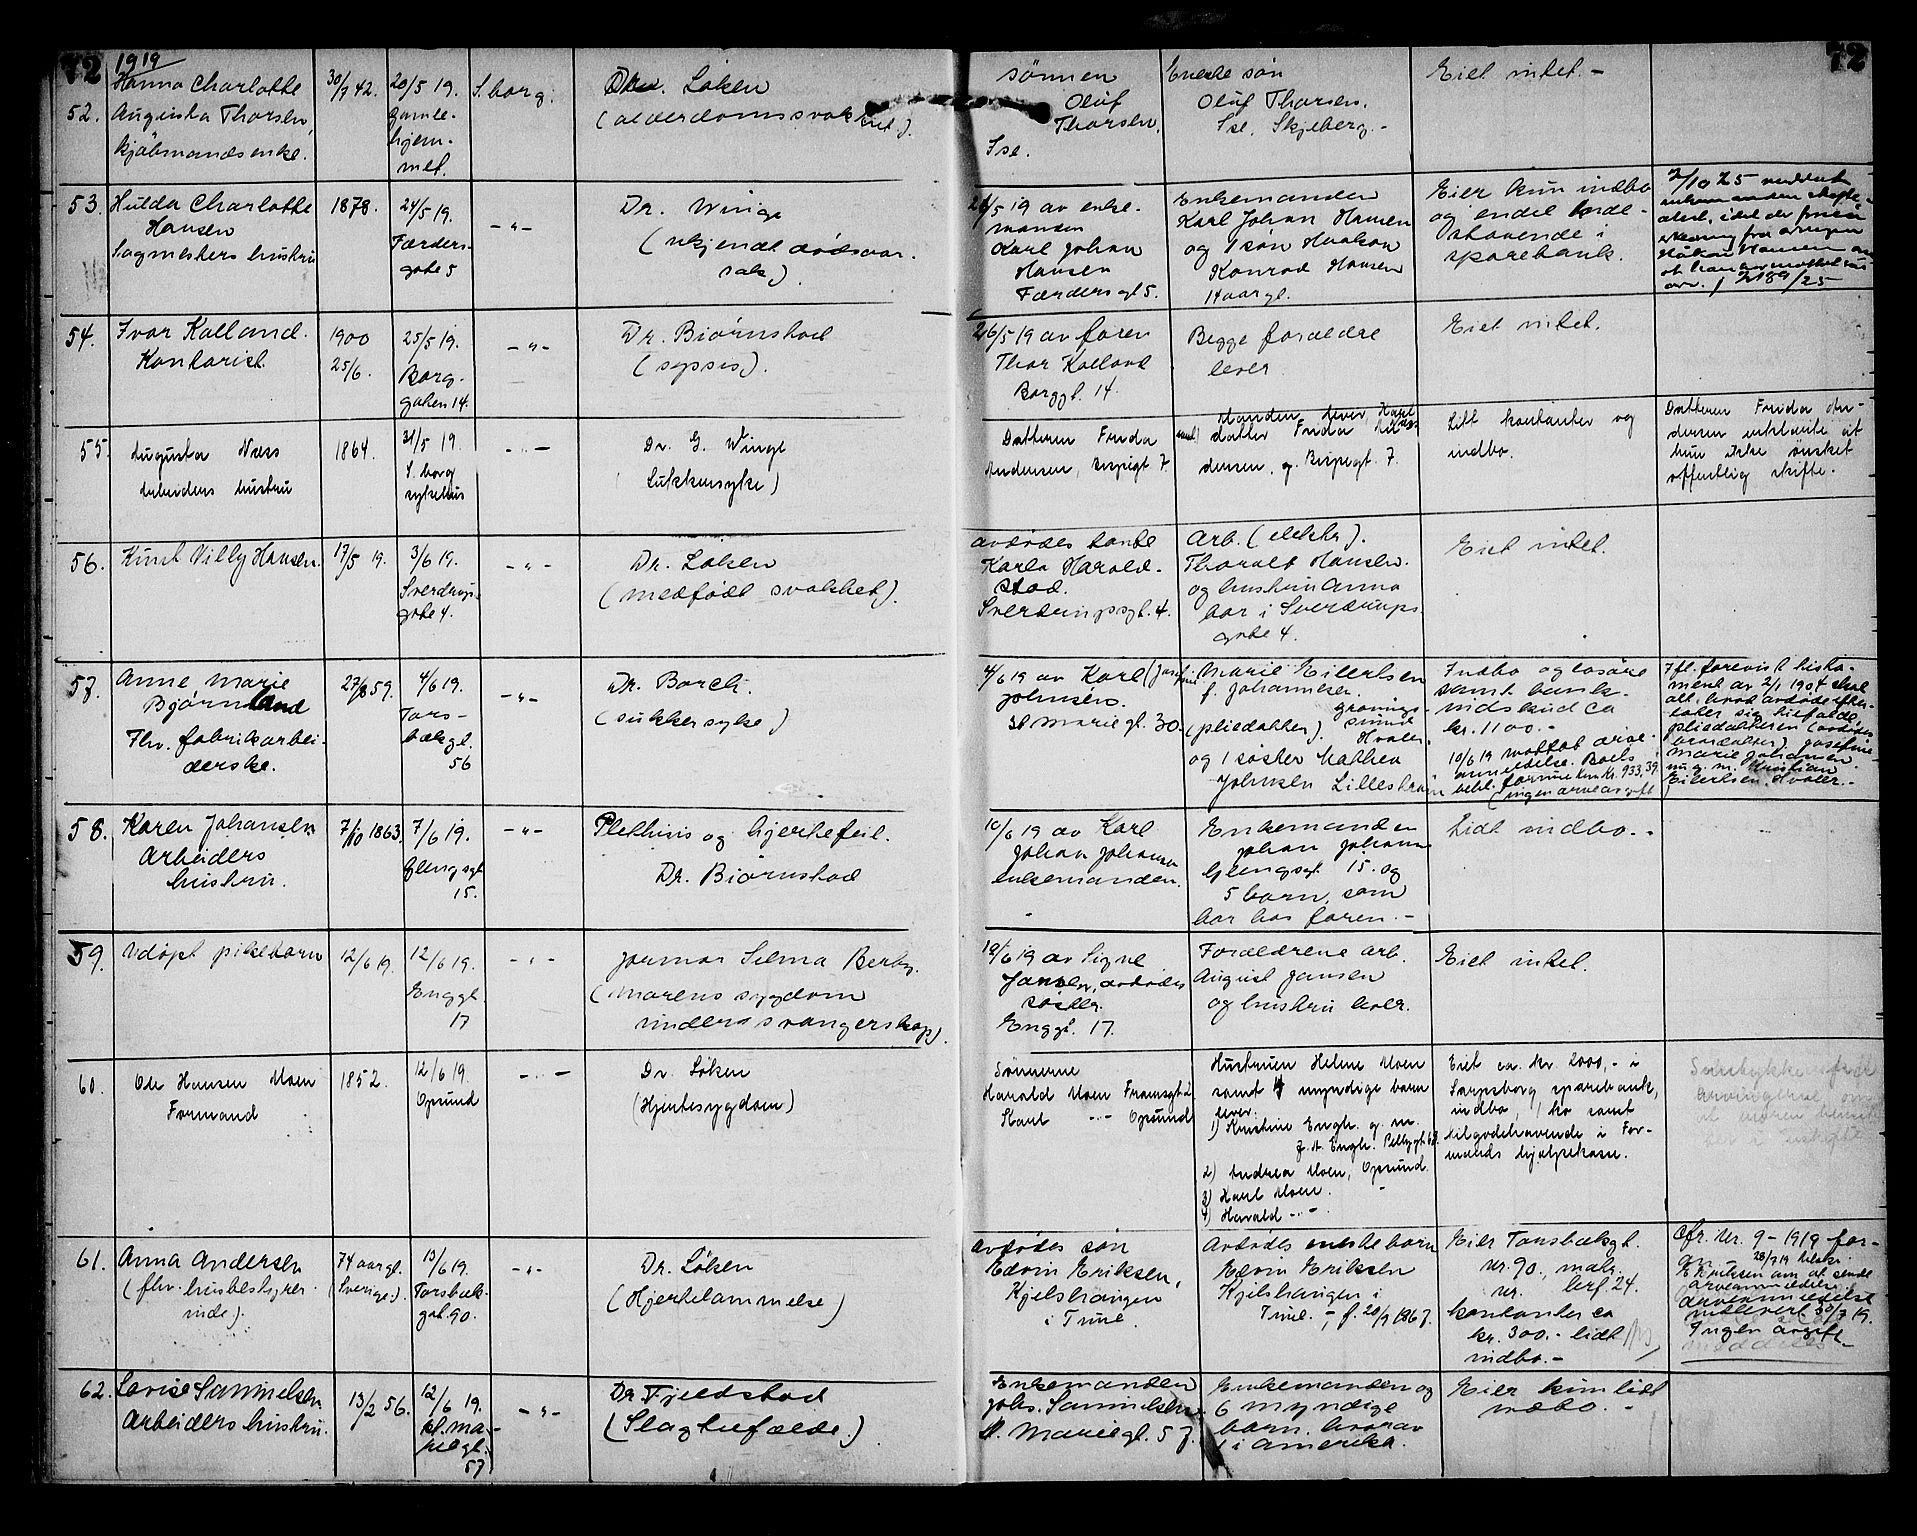 72
1919
52.
Hanna Charlotte
Augusta Thorsen,
kjøbmandsenke.
30/7 42.
20/5 19.
Gamle-
hjem-
met.
S.borg.
Dr. Løken
(alderdomssvakhet).
Sønnen
Oluf
Thorsen,
Ise.
Eneste søn
Oluf Thorsen.
Ise, Skjeberg.-
Eiet intet.-
72
53.
Hulda Charlotte
Hansen
Sagmesters hustru
1878.
24/5 19.
Færders-
gate 5
-"-
Dr. Winge
(ukjendt dødsaar-
sak)
/5 19 av enke-
manden
Karl Johan
Hansen
Færdersgt 5.
Enkemanden
Karl Johan Hansen
og 1 søn Haakon
Konrad Hansen
14 aar gl.
Eier kun indbo
og endel inde-
staaende i
sparebank.
2/10 25
54.
Ivar Kolland.
Kontorist.
1900
25/6.
25/5 19.
Borg-
gaten 14.
-"-
Dr. Bjørnstad
(sepsis).
26/5 19 av faren
Thor Kolland
Borggt. 14.
Begge forældre
lever.
Eiet intet.
55.
Augusta Næss
Arbeiders hustru
1864.
31/5 19
S.borg
sykehus
-"-
Dr. G. Winge
(Sukkersyke)
Datteren Frida
Andersen, Bispegt 7.
Manden lever,
samt datter Frida An-
dersen, g. Bispegt. 7.
Litt kontanter og
indbo.
Datteren Frida An-
dersen erklærte at
hun ikke ønsket
offentlig skifte.
56.
Knut Villy Hansen.
17/5 19.
3/6 19.
Sverdrups-
gate 4.
-"-
Dr. Løken
(medfødt svakhet).
Avdødes tante
Karla Harald-
stad.
Sverdrupsgt. 4.
Arb. (elektr).
Thoralf Hansen.
og hustru Anna
bor i Sverdrups
gate 4.
Eiet intet.
57.
Anne Marie
Bjørnland
Fhv. fabrikarbei-
derske.
27/8 59.
4/6 19.
Tors-
bækgt.
56
-"-
Dr. Borch.
(sukkersyke)
4/6 19 av Karl
Johnsen.
St Marie gt. 30.
Marie Eilertsen
f. Johannesen.
(pliedatter).
Hvaler.
og 1 søster Mathea
Johnsen Lillestrøm
Indbo og løsøre
samt bank-
indskud ca
kr. 1100.-
10/6 19 mottat arve-
anmeldelse. Boets
beh. formue kun kr. 933,39.
(ingen arveavgift
7/6 forevist testa-
ment av 2/1 1904
Marie Johansen.
nu g. m. Kristian
Eilertsen Hvaler.-
58.
Karen Johansen
Arbeiders
hustru.
7/10 1863.
7/6 19.
Glengsgt
15.
-"-
Plethisis og hjertefeil.
Dr. Bjørnstad
10/6 19 av Karl
Johan Johansen
enkemanden.
Enkemanden
Johan Johansen
Glengsgt. 15. og
5 barn, som
bor hos faren.-
Lidt indbo.-
59.
Udøpt pikebarn
12/6 19.
12/6 19.
Enggt.
17
-"-
Jormor Selma Berby.
(Morens sygdom
under svangerskap).
12/6 19 av Signe
Jansen, avdødes
søster.
Enggt. 17.
Forældrene arb.
August Jansen
og hustru lever.
Eiet intet.
60.
Ole Hansen Moen
Formand
1852.
12/6 19.
Opsund
-"-
Dr. Løken
(Hjertesygdom)
Sønnerne
Harald Moen Framsgt 2
Karl -"- Opsund
Hustruen Helene Moen
samt 4 myndige barn
lever:
1) Kristine Engh. g. m.
2) Andrea Moen, Opsund.
3) Karl Moen. -
4) Harald -"-
Eiet ca. kr. 2000,- i
Sarpsborg sparebank,
indbo, 1 ko samt
tilgodehavende i For-
mands hjælpekasse.
61.
Anna Andersen
(fhv. husbestyrer-
inde).
74 aar gl.
(Sverige.)
13/6 19.
Torsbæk-
gat. 90.
-"-
Dr. Løken
(Hjertelammelse)
Avdødes søn
Edvin Eriksen,
Kjelshaugen
i Tune.
Avdødes eneste barn
Edvin Eriksen
Kjelshaugen i
Tune. -, f. 20/9 1867.
Eier Torsbækgt.
nr. 90., matr.
nr. brf. 24.
kontanter ca
kr. 300.- lidt
indbo.-
Cfr. Nr. 9-1919
arveanmeldelse
indlevert 30/7 19.
Ingen avgift.
62.
Lovise Samuelsen.
Arbeiders hustru.
13/2 56.
12/6 19.
St. Ma-
riegt.
57
-"-
Dr. Fjeldstad
(Slagtilfælde.)
Enkemanden
Johs. Samuelsen
St. Mariegt. 57.
Enkemanden og
6 myndige
barn, hvorav
1 i Amerika.
Eier kun lidt
indbo.-